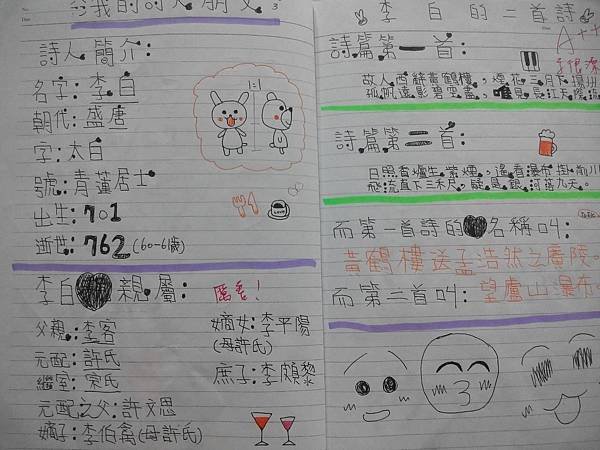 我的時人朋友
詩人簡介:
名字:李白
朝代:盛唐
字:太白
號:青蓮居士
出生:701
逝世:762(60-61歲)
李白親屬:
厲害!
父親:李客
元配:許氏
繼室:宋氏
元配之父:許文思
嫡子:李伯禽(母許氏)
嫡女:李平陽
(母許氏)
庶子:李頗黎
1=1
LOVE
李白的二首詩
A++
詩篇第一首:
故人西辭黃鶴樓,煙花三月下揚州
孤帆遠影碧空盡,唯見長江天際流
詩篇第二首:
日照香爐生紫煙,遙看瀑布掛前川
飛流直下三千尺,疑是銀河落九天。
而第一首詩的名稱叫:
黃鶴樓送孟浩然之廣陵。
而第二首叫:望廬山瀑布。